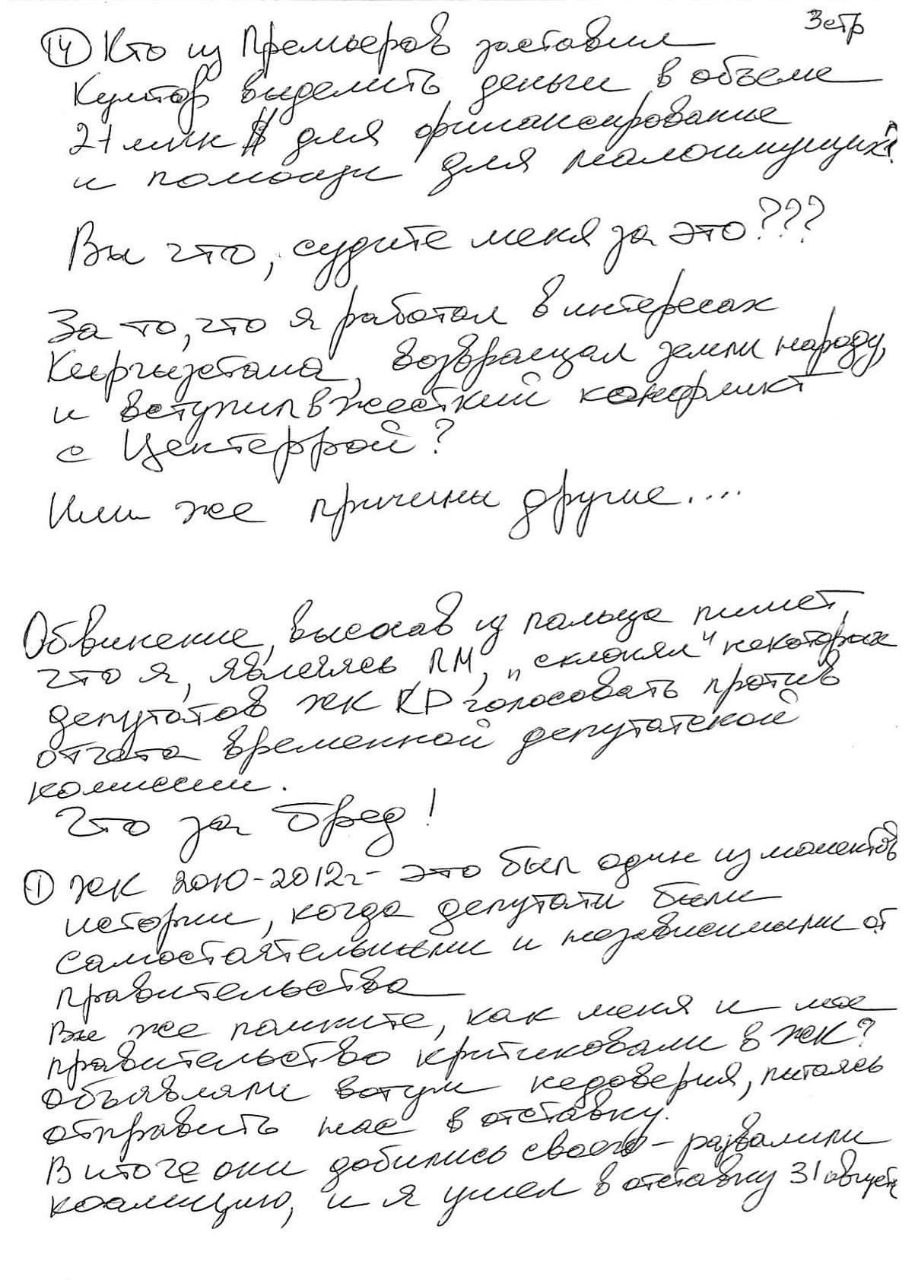 3 стр
14 Кто из Премьеров заставил
Кумтор выделить деньги в объеме
21 млн $ для финансирование
и помощи для малоимущих?
Вы что, судите меня за это???
За то, что я работал в интересах
Кыргызстана, возвращал земли народу,
и вступил в жесткий конфликт
с Центеррой?
Или же причины другие....
Обвинение, высосав из пальца пишет,
что я, являясь ПМ, "склонял" некоторых
депутатов ЖК КР голосовать против
отчета временной депутатской
комиссии.
Что за бред!
1 ЖК 2010-2012г - это был один из моментов
истории, когда депутаты были
самостоятельными и независимыми от
правительства
Вы же помните, как меня и мое
правительство критиковали в ЖК?
Объявляли вотум недоверия, пытаясь
отправить нас в отставку.
В итоге они добились своего - развалили
коалицию, и я ушел в отставку 31 августа